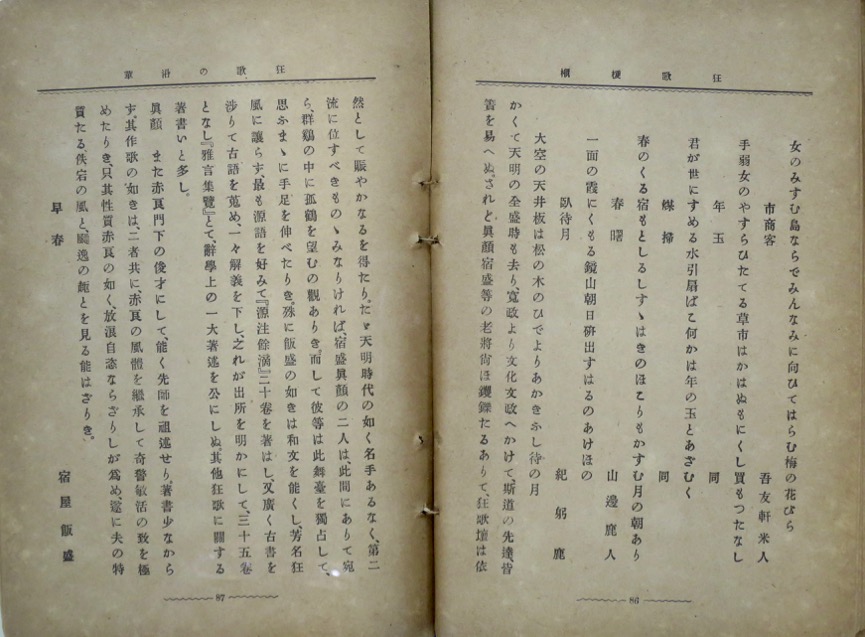 狂歌梗概
女のみすむ島ならでみんなみに向ひてはらむ梅の花びら
市商客
吾友軒米人
手弱女のやすらひたてる草市はかはぬもにくし買もつたなし
年玉
同
君が世にすめる水引扇ばこ何かは年の玉とあざむく
煤掃
同
春のくる宿もとしるしすゝはきのほこりもかすむ月の朝あり
春曙
山邊鹿人
一面の霞にくもる鏡山朝日硏出すはるのあけほの
臥待月
紀躬鹿
大空の天井板は松の木のひでよりあかきふし待の月
かくて天明の全盛時も去り、寬政より文化文政へかけて、斯道の先達皆
簀を易へぬ。されど眞顏宿盛等の老將尙ほ矍鑠たるありて、狂歌壇は依
86
狂歌の沿革
然として賑やかなるを得たり。たゞ天明時代の如く名手あるなく、第二
流に位すべきものゝみなりければ、宿盛眞顏の二人は此間にありて宛
ら、群鷄の中に孤鶴を望むの觀ありき。而して彼等は此舞臺を獨占して、
思ふまゝに手足を伸べたりき。殊に飯盛の如きは和文を能くし、芳名狂
風に讓らず、最も源語を好みて『源注餘滴』二十卷を著はし、又廣く古書を
涉りて古語を蒐め、一々解義を下し、之れが出所を明かにして、三十五卷
となし『雅言集覽』とて、辭學上の一大著述を公にしぬ。其他狂歌に關する
著書いと多し。
眞顏 また赤良門下の俊才にして、能く先師を祖述せり、著書少なから
す。其作歌の如きは、二者共に、赤良の風體を繼承して奇警敏活の致を極
めたりき、只其性質赤良の如く、放浪自恣ならざりしが爲め、遂に夫の特
質たる、佚宕の風と、飄逸の趣とを見る能はざりき。
早春
宿屋飯盛
87